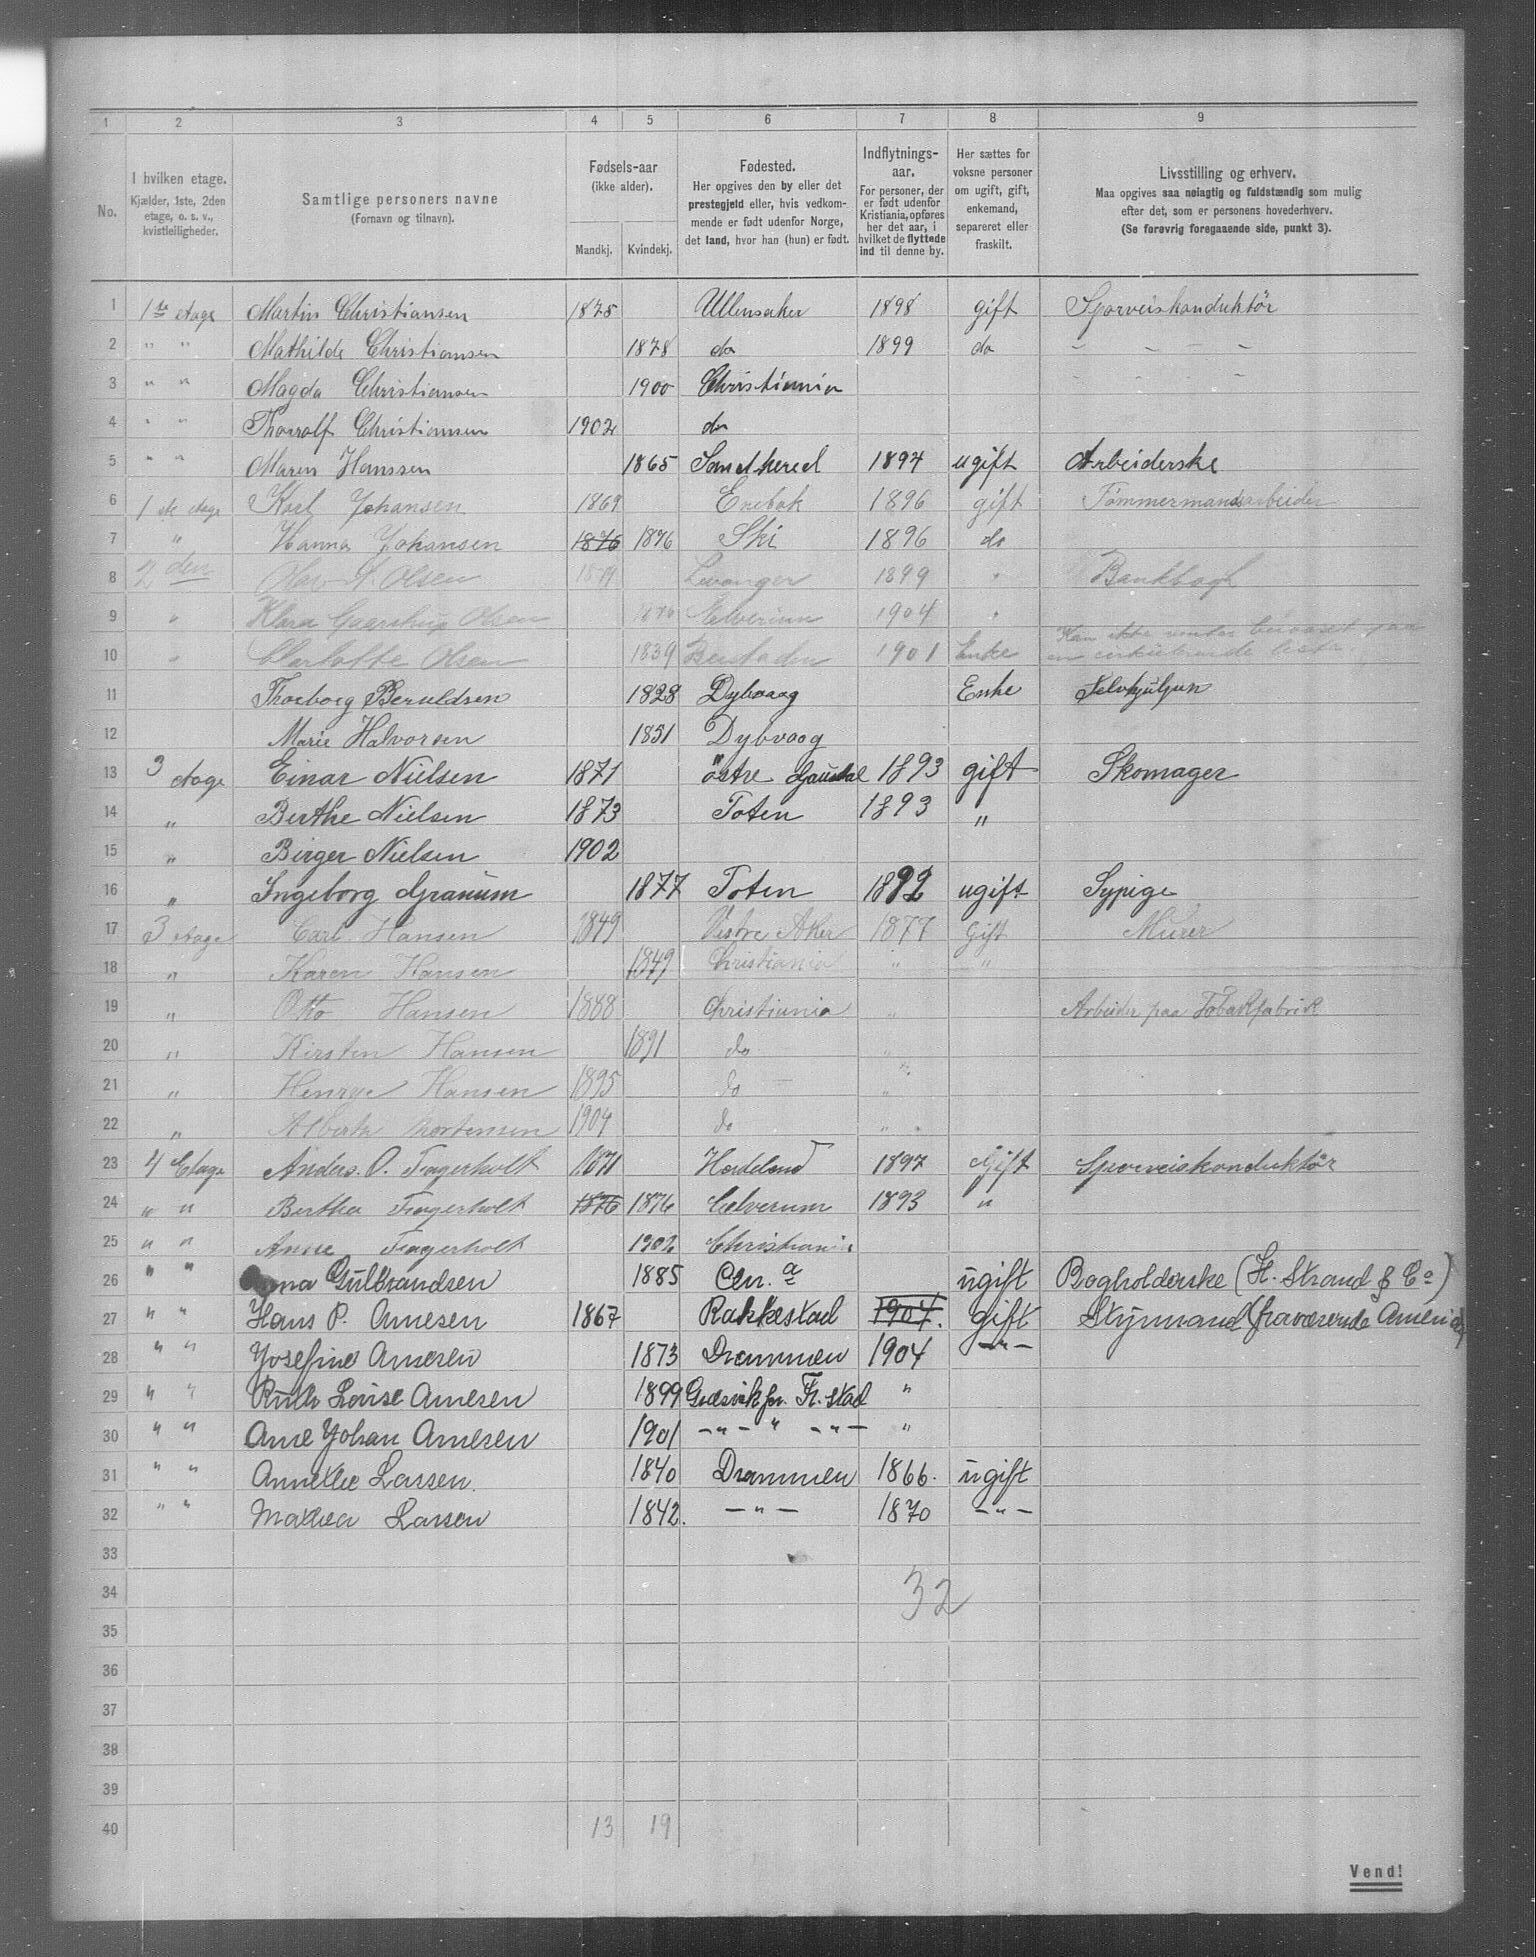 1 2 3 4 5 6 7 8 9
No.
I hvilken etage. Kjælder, 1ste, 2den etage, o. s. v., kvistleiligheder.
Samtlige personers navne (Fornavn og tilnavn).
Fødsels-aar (ikke alder). Mandkj. Kvindekj.
Fødested. Her opgives den by eller det prestegjeld eller, hvis vedkommende er født udenfor Norge, det land, hvor han (hun) er født.
Indflytnings-aar. For personer, der er født udenfor Kristiania, opføres her det aar, i hvilket de flyttede ind til denne by.
Her sættes for voksne personer om ugift, gift, enkemand, separeret eller fraskilt.
Livsstilling og erhverv. Maa opgives saa nøiagtig og fuldstændig som mulig efter det, som er personens hovederhverv. (Se forøvrig foregaaende side, punkt 3).
1 1ste etage Martin Christiansen 1875 Ullensaker 1898 gift Sporveiskonduktör
2 " " Mathilde Christiansen 1878 do 1899 do - - - -
3 " " Magda Christiansen 1900 Christiania - - -
4 " " Thoralf Christiansen 1902 do
5 " " Maren Hanssen 1865 Sandhered 1894 ugift Arbeiderske
6 1ste etage Karl Johansen 1869 Enebak 1896 gift Tömmermandsarbeider
7 " Hanna Johansen 1876 1876 Ski 1896 do
8 2den Olav A. Olsen 1879 Levanger 1899 " Bankbogh
9 " Klara Olsen 1876 Elverum 1904 "
10 " Charlotte Olsen 1839 1901 Enke Kan ikke ventes besvaret paa en cirkulerende liste
11 Thorborg Beruldsen 1828 Dybvaag Enke Selvhjulpen
12 Marie Halvorsen 1851 Dybvaag
13 3 etage Einar Nielsen 1871 östre Gausdal 1893 gift Skomager
14 " Berthe Nielsen 1873 Toten 1893 "
15 " Birger Nielsen 1902
16 " Ingeborg Granum 1877 Toten 1892 ugift Sypige
17 3 etage Carl Hansen 1849 Vestre Aker 1877 Gift Murer
18 " Karen Hansen 1849 Christiania " "
19 " Otto Hansen 1888 Christiania " Arbeider paa Tobakfabrik
20 " Kirsten Hansen 1891 do "
21 " Henrye Hansen 1895 do "
22 " Alberth Mortensen 1904 do " "
23 4 Etage Anders. O. Fagerholt 1871 Hadeland 1897 Gift Sporveiskonduktör
24 " " Bertha Fagerholt 1876 1876 Elverum 1893 "
25 " " Anne Fagerholt 1902 Christiania
26 " " Gulbrandsen 1885 Chr.a ugift Bogholderske (H. Strand & Co)
27 " " Hans P. Arnesen 1867 Rakkestad 1904. gift Styrmand (fraværende Amerika)
28 " " Josefine Arnesen 1873 Drammen 1904 -"-
29 " " Ruth Lovise Arnesen 1899 Fr. stad "
30 " " Arne Johan Arnesen 1901 -"-" -"- "
31 " " Annethe Larsen. 1840 Drammen 1866. ugift
32 " " Mathea Larsen 1842. -"- 1870 -"-
33
34 32
35
36
37
38
39
40 13 19
Vend!